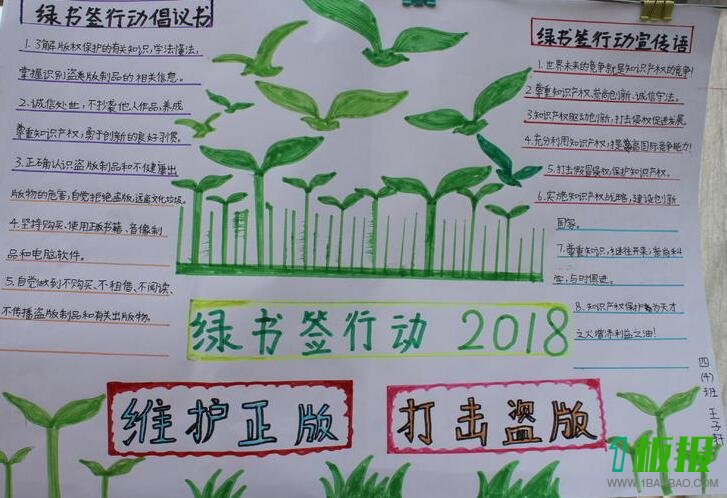 绿书签行动倡议书
1.了解版权保护的有关知识,学法懂法,
掌握识别盗版制品的相关信息。
2.诚信处世,不抄袭他人作品,养成
尊重知识产权,勇于创新的良好习惯。
3.正确认识盗版制品和不健康出
版物的危害,自觉拒绝盗版,远离文化垃圾。
4.坚持购买、使用正版书籍、音像制
品和电脑软件。
5.自觉做到不购买、不租借、不阅读、
不传播盗版制品和有关出版物。
绿书签行动宣传语
1.世界未来的竞争就是知识产权的竞争!
2.尊重知识产权,崇尚创新、诚信守法。
3.知识产权驱动创新,打击侵权促进发展。
4.充分利用知识产权,提高国际竞争能力!
5.打击假冒侵权,保护知识产权。
6.实施知识产权战略,建设创新
国家。
7.尊重知识,继往开来;崇尚科
学,与时俱进。
8.知识产权保护为天才
之火增添利益之油!
绿书签行动 2018
维护正版
打击盗版
四(4)班 王子
1板报
WWW.1BANBAO.COM